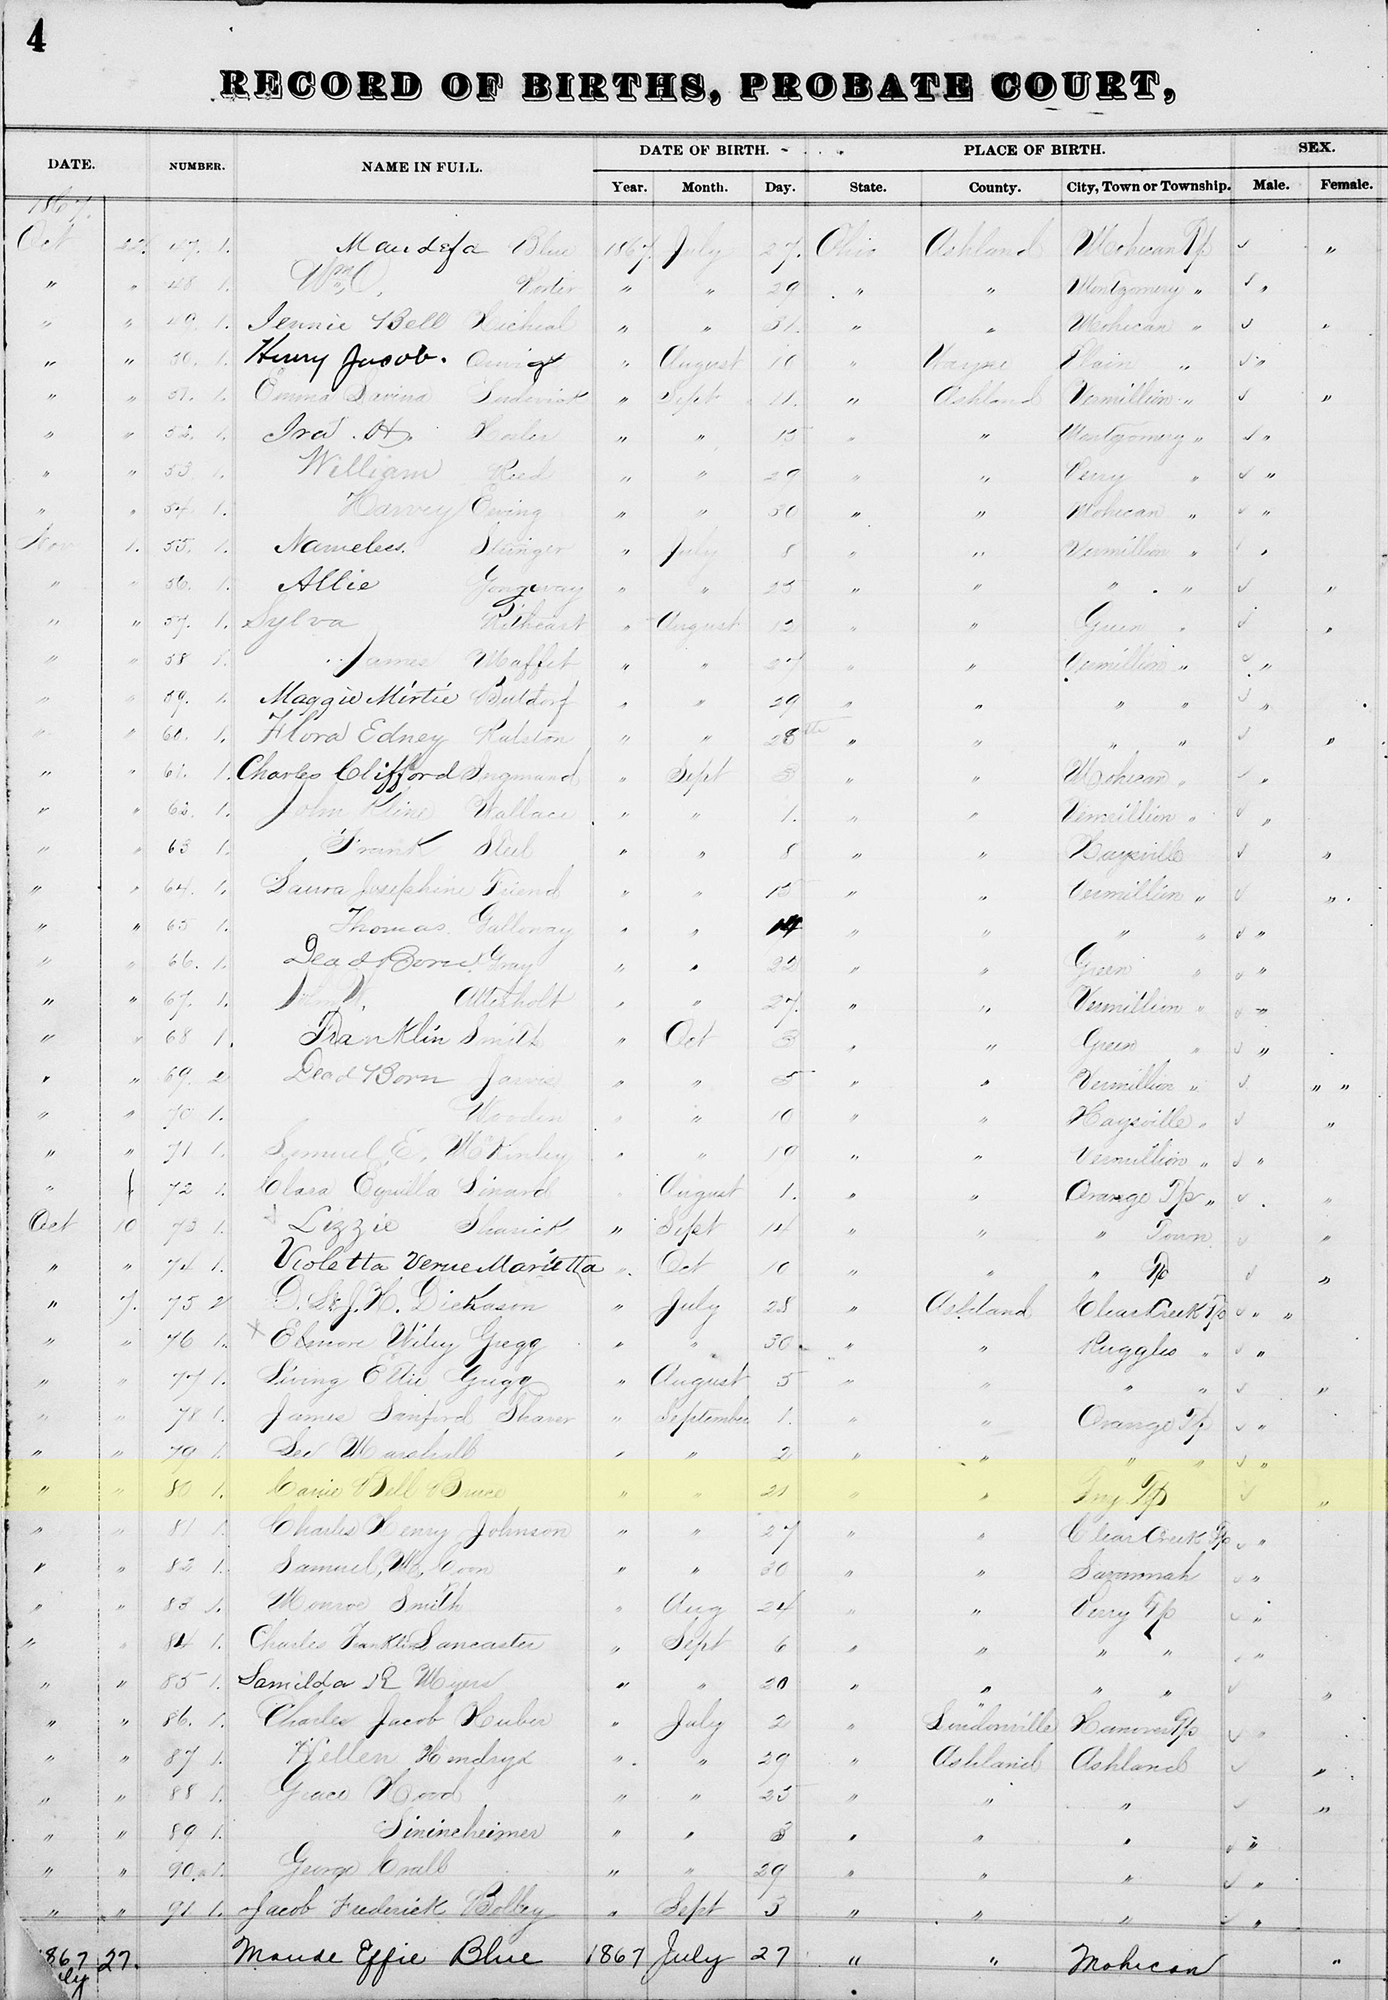 4
RECORD OF BIRTHS, PROBATE COURT,
DATE. NUMBER. NAME IN FULL. DATE OF BIRTH. PLACE OF BIRTH. SEX.
Year. Month. Day. State. County. City, Town or Township. Male. Female.
1867.
Oct 22 47 1. Blue 1867 July 27. Ohio Ashland Mohican Tp ✓ "
" " 48 1. Wm O. Porter " " 29 " " Montgomery " ✓ "
" " 49 1. Jennie Bell " " 31. " " Mohican " ✓ "
" " 50. 1. Henry Jacob. " August 10 " Wayne Plain " ✓ "
" " 51. 1. Emma " Sept 11. " Ashland Vermillion " ✓ "
" " 52. 1. Ira H. " " 15 " " Montgomery " ✓ "
" " 53 1. William Reed " " 29 " " Perry " ✓ "
" " 54 1. Harvey Ewing " " 30 " " Mohican " ✓ "
Nov 1. 55. 1. Nameless. Stringer " July 8 " " Vermillion " ✓ "
" " 56. 1. Allie " " 25 " " " " ✓ "
" " 57. 1. Sylva " August 12 " " Green " ✓ "
" " 58 1. James Maffet " " 27 " " Vermillion " ✓ "
" " 59. 1. Maggie Mirtie " " 29 " " " " ✓ "
" " 60. 1. Flora Edney Ralston " " 28th " " " " ✓ "
" " 61. 1. Charles Clifford Ingmand " Sept 3 " " Mohican " ✓ "
" " 62. 1. John Kline Wallace " " 1. " " Vermillion " ✓ "
" " 63 1. Frank Steel " " 8 " " Haysville ✓ "
" " 64. 1. Laura Josephine Friend " " 15 " " Vermillion " ✓ "
" " 65 1. Thomas. Galloway " " 14 " " " " ✓ "
" " 66. 1. Dead Born Gray " " 22 " " Green " ✓ "
" " 67. 1. " " 27. " " Vermillion " ✓ "
" " 68 1. Franklin Smith " Oct 3 " " Green " ✓ "
" " 69. 2 Dead Born Jarvis " " 5 " " Vermillion " ✓ " "
" " 70 1. Wooden " " 10 " " Haysville " ✓ "
" " 71 1. Samuel E. McKinley " " 19 " " Vermillion " ✓ "
" 72 1. Clara " August 1. " " Orange Tp " ✓ "
Oct 10 73 1. Lizzie Sharick " Sept 14 " " " Town ✓ "
" " 74 1. Violetta Verne Marietta " Oct 10 " " " Tp ✓ "
" 7. 75 2 D. S & J. H. Dickason " July 28 " Ashland Clear Creek Tp ✓ " "
" " 76 1. Elmore Wiley Gregg " " 30. " " Ruggles " ✓ "
" " 77 1. Living Ettie Gregg " August 5 " " " " ✓ "
" " 78 1. James Sanford Sharer " September 1. " " Orange Tp ✓ "
" " 79 1. Marshall " " 2 " " " " ✓ "
" " 80 1. Carrie Bell Bruce " " 21 " " Troy Tp ✓ "
" " 81 1. Charles Henry Johnson " " 27 " " Clear Creek Tp ✓ "
" " 82 1. Samuel, M, Coon " " 30 " " Savannah ✓ "
" " 83 1. Monroe Smith " Aug 24 " " Perry Tp ✓ "
" " 84 1. Charles Franklin Lancaster " Sept 6 " " " " ✓ "
" " 85 1. Samilda R Myers " " 20 " " " " ✓ "
" " 86. 1. Charles Jacob Huber " July 2 " Loudonville Hanover Tp ✓ "
" " 87 1. Hellen Hendryx " " 29 " Ashland Ashland ✓ "
" " 88 1. Grace Hood " " 25 " " " ✓ "
" " 89 1. " " 3 " " " ✓ "
" " 90. 1. George Crall " " 29 " " " ✓ "
" " 91 1. Jacob Frederick Bolbey " Sept 3 " " " ✓ "
1867 July 27. Maude Effie Blue 1867 July 27 " " Mohican "